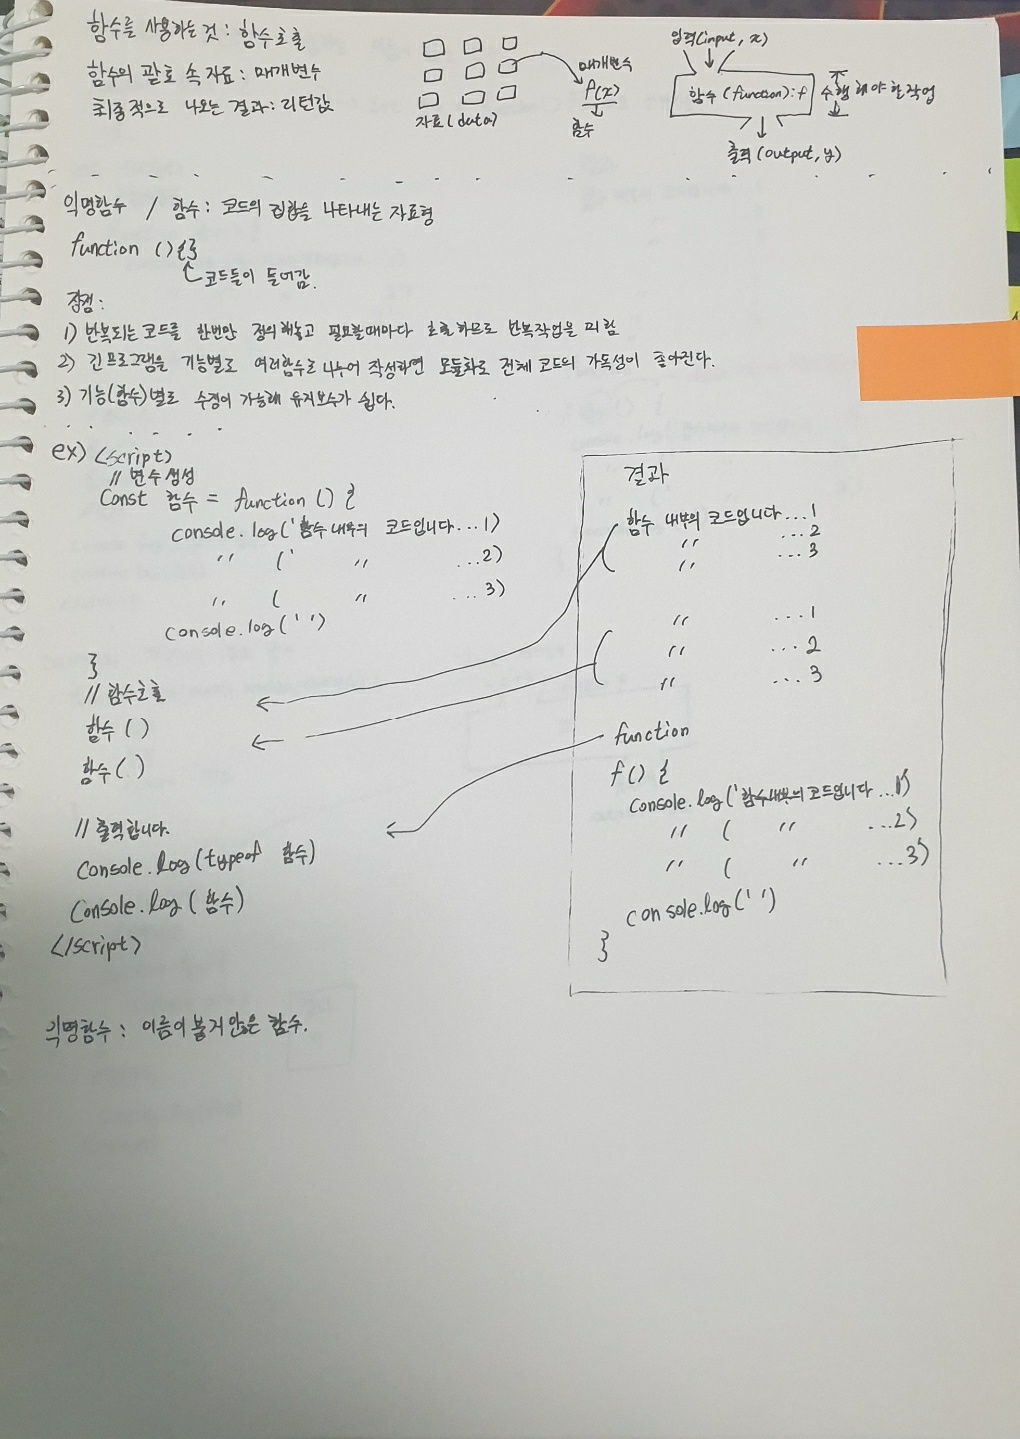 함수를 사용하는 것: 함수호출
함수의 괄호 속 자료: 매개변수
최종적으로 나오는 결과: 리턴값
자료(data)
매개변수
f(x)
함수
입력(input, x)
함수 (function): f
수행해야 할 작업
출력(output, y)
익명함수 / 함수: 코드의 집합을 나타내는 자료형
function () {}
코드들이 들어감.
장점:
1) 반복되는 코드를 한번만 정의해놓고 필요할때마다 호출하므로 반복작업을 피함
2) 긴프로그램을 기능별로 여러함수로 나누어 작성하면 모듈화로 전체 코드의 가독성이 좋아진다.
3) 기능(함수)별로 수정이 가능해 유지보수가 쉽다.
ex) <script>
// 변수 생성
const 함수 = function () {
console.log('함수 내부의 코드입니다...1)
〃 (' 〃 ...2)
〃 ( 〃 ...3)
console.log('')
}
// 함수호출
함수()
함수()
// 출력합니다.
console.log(typeof 함수)
console.log(함수)
</script>
결과
함수 내부의 코드입니다...1
〃 ...2
〃 ...3
〃 ...1
〃 ...2
〃 ...3
function
f() {
console.log('함수내부의 코드입니다...1')
〃 ( 〃 ...2')
〃 ( 〃 ...3')
console.log('')
}
익명함수: 이름이 붙지 않은 함수.